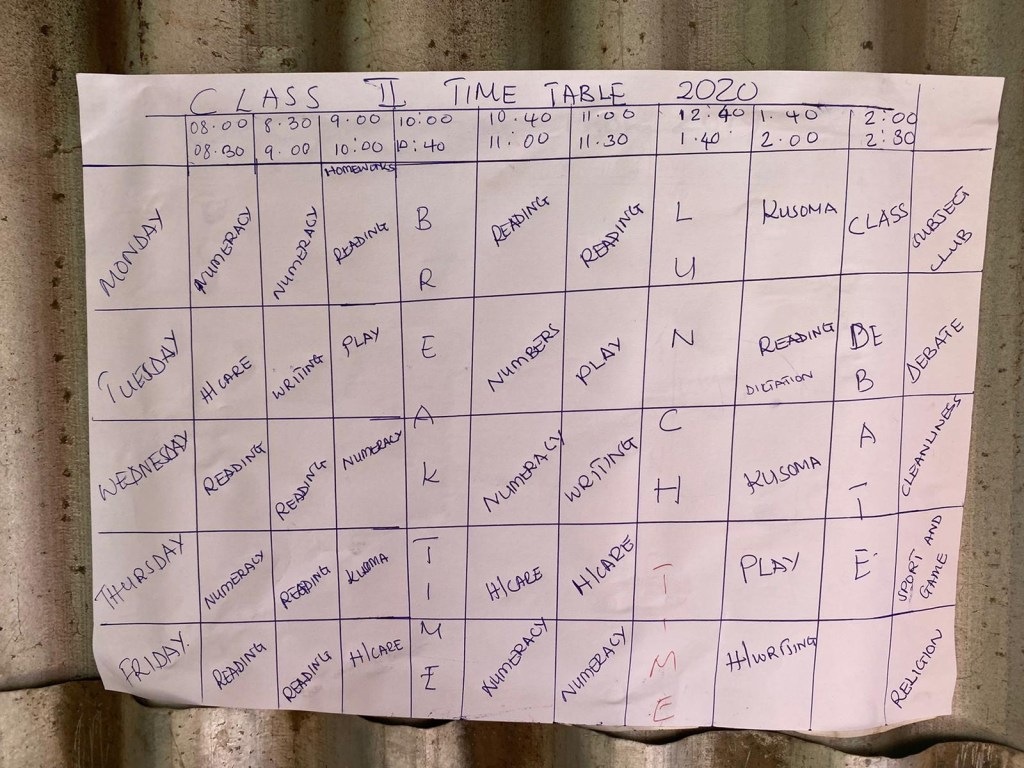 CLASS II TIME TABLE 2020
08.00 8.30 9.00 10:00 10.40 11.00 12:40 1.40 2:00
08.30 9.00 10:00 10:40 11:00 11.30 1.40 2.00 2:30
HOMEWORKS
MONDAY NUMERACY NUMERACY READING B R READING READING L U KUSOMA CLASS SUBJECT CLUB
TUESDAY H/CARE WRITING PLAY E NUMBERS PLAY N READING DICTATION BE B DEBATE
WEDNESDAY READING READING NUMERACY A K NUMERACY WRITING C H KUSOMA A T CLEANLINESS
THURSDAY NUMERACY READING T I H/CARE H/CARE T I PLAY E SPORT AND GAME
FRIDAY. READING READING H/CARE M E NUMERACY NUMERACY M E H/WRITING RELIGION